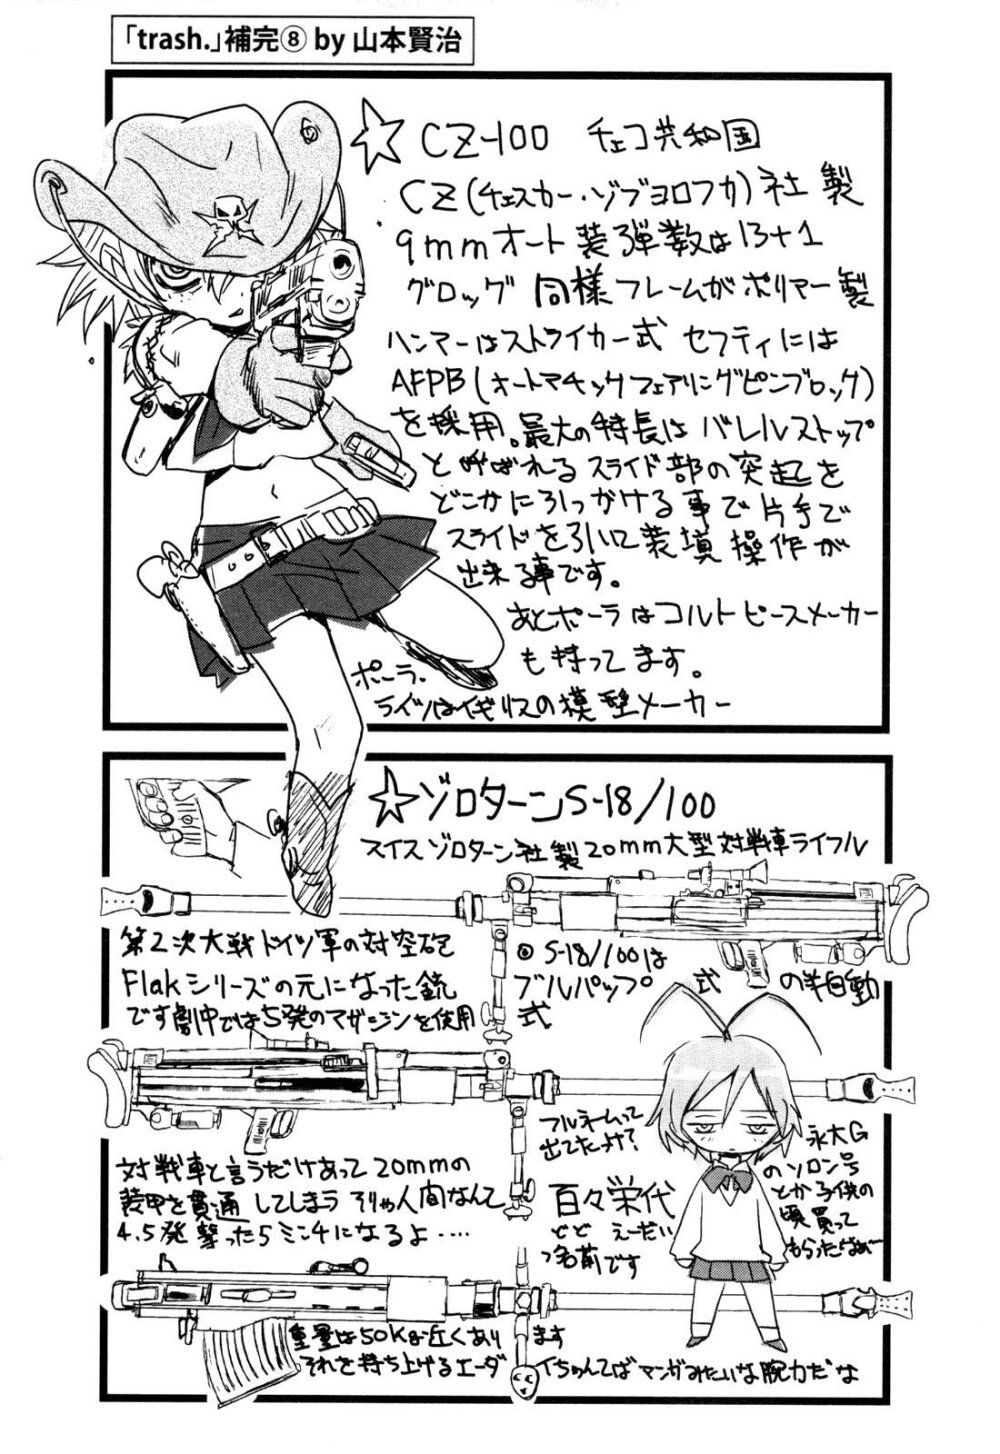 「trash.」補完⑧ by 山本賢治
☆CZ-100 チェコ共和国
CZ(チェスカー・ゾブヨロフカ)社製
9mmオート装弾数は13+1
グロッグ同様フレームがポリマー製
ハンマーはストライカー式 セフティには
AFPB(オートマチックフェアリングピンブロック)
を採用。最大の特長はバレルストップ
と呼ばれるスライド部の突起を
どこかに引っかける事で片手で
スライドを引いて装填操作が
出来る事です。
あとポーラはコルトピースメーカー
も持ってます。
ポーラ・
ライツはイギリスの模型メーカー
☆ゾロターンS-18/100
スイスゾロターン社製20mm大型対戦車ライフル
第2次大戦ドイツ軍の対空砲
Flakシリーズの元になった銃
です劇中では5発のマガジンを使用
◎S-18/100は
ブルパップ式の半自動
式
対戦車と言うだけあって20mmの
装甲を貫通してしまう そりゃ人間なんて
4.5発撃ったらミンチになるよ‥‥
フルネームって
出てたっけ?
百々栄代
どど えーだい
つ名前です
永大G
のソロン号
とか子供の
頃買って
もらったなぁ〜
重量は50kg近くあります
それを持ち上げるエーダイちゃんてばマンガみたいな腕力だな